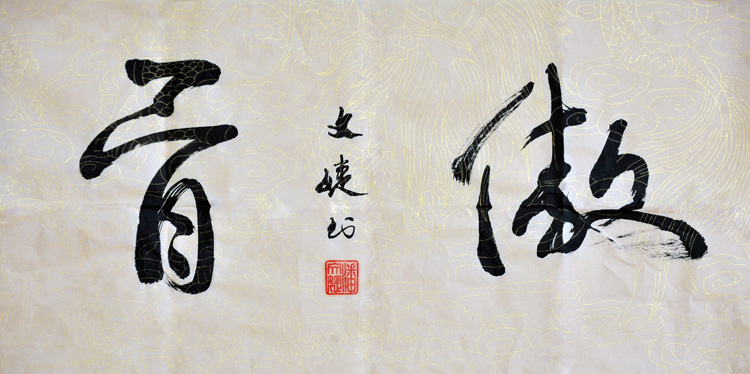 傲骨
文婕